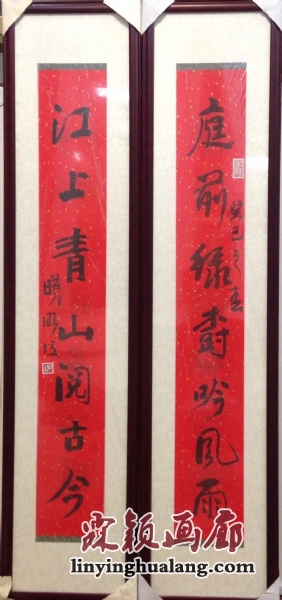 庭前绿树吟风雨
癸巳之春
江上青山阅古今
霖颖画廊
linyinghualang.com